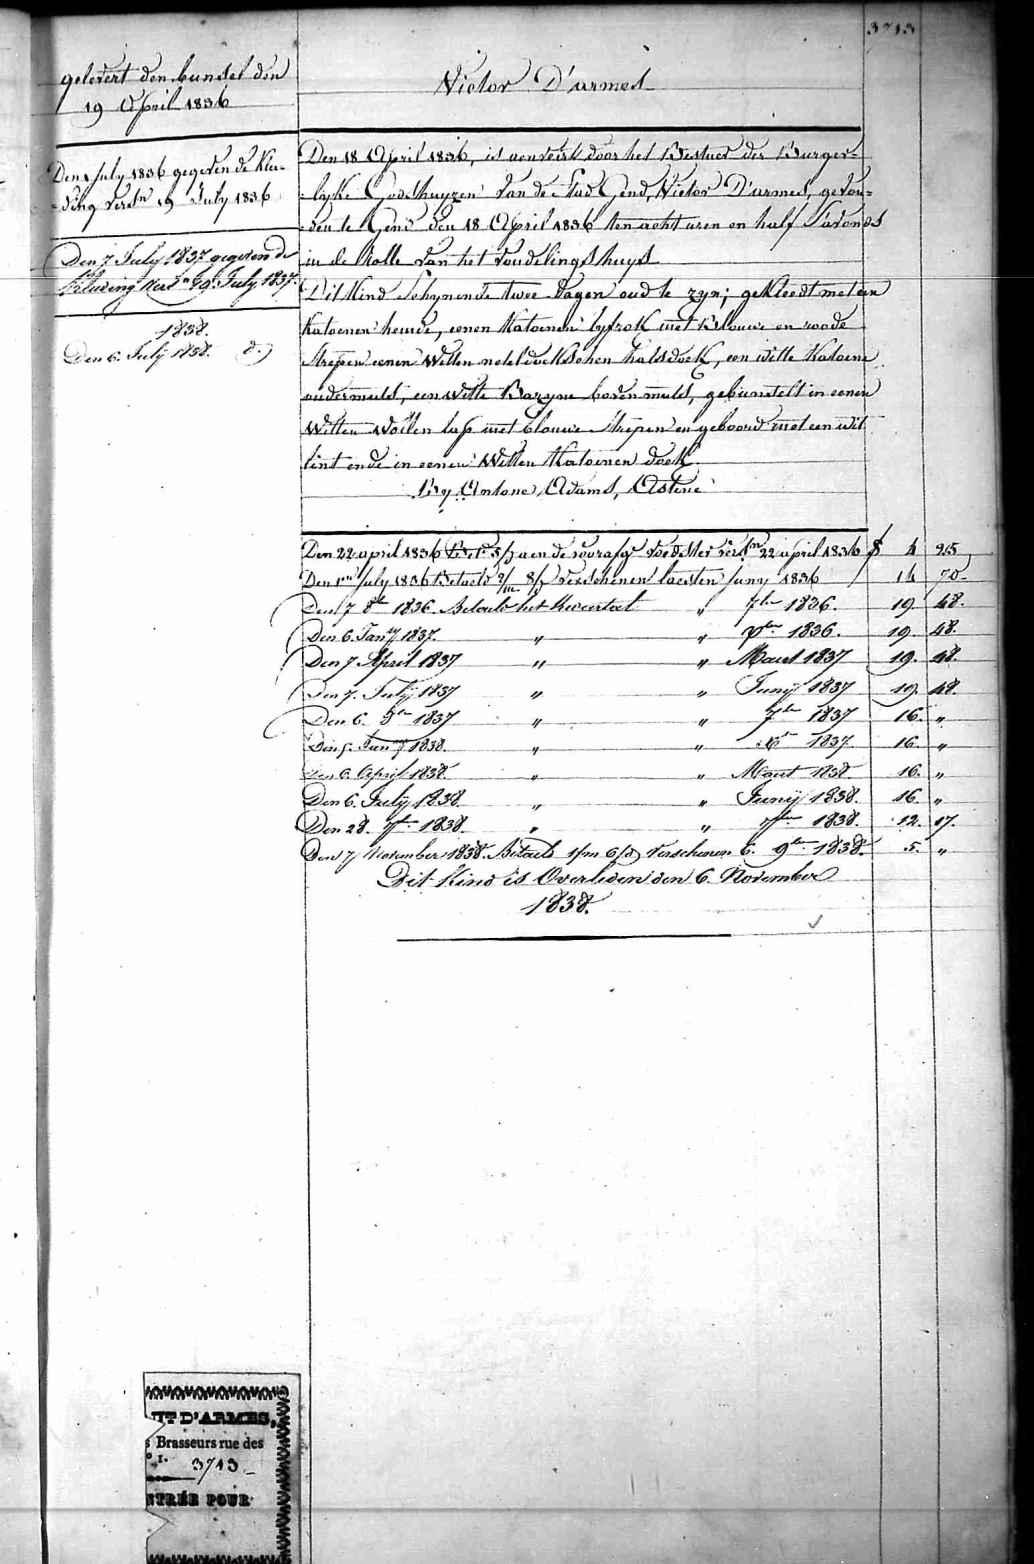 3713
gelevert den bundel den
19 April 1836
Victor D'armes
Den 1 July 1836 gegeven de klee-
-ding versn 19 July 1836
Den 7 July 1837 gegeven de
kleeding vers.n 19. July 1837.
1838.
Den 6. July 1838. d.)
Den 18 April 1836, is aenveirt door het Bestuer der Burger-
-lyke Godshuyzen van de Stad Gend, Victor D'armes, gevon-
-den te Gend den 18 April 1836 ten acht uren en half s'avonds
in de rolle van het vondelings huys
Dit Kind Schynende twee dagen oud te zyn; gekleedt met een
Katoenen hemde, eenen Katoenen lyfrok met Blouwe en roode
strepen eenen Witten neteldoekschen halsdoek, een witte Katoene
ondermuts, een witte Bazyne bovenmuts, gebundelt in eenen
Witten wollen lap met blouwe strepen en geboord met een wit
lint ende in eenen Witten Katoenen doek.
By Antone Adams, Astene
Den 22 april 1836 aen de voorafg. voedster vers.en 22 april 1836 f 4 25
Den 1.en July 1836 Betaelt 2/m 8/d verschenen laesten Juny 1836 14 70
Den 7 8.bre 1836. Betaelt het Kwartael " 7bre 1836. 19. 48.
Den 6. Jany 1837. " " Xbre 1836. 19. 48.
Den 7 April 1837 " " Maert 1837 19. 48.
Den 7. July 1837 " " Junij 1837 19. 48.
Den 6. 8bre 1837 " " 7bre 1837 16. "
Den 5. Jany 1838. " " Xbre 1837 16. "
Den 6. April 1838. " " Maert 1838 16. "
Den 6. July 1838. " " Junij 1838. 16. "
Den 28. 7bre 1838. " " 7bre 1838. 12. 17.
Den 7 November 1838 Betaelt 1/m 6/d Verschenen 6. 9bre 1838. 5. "
Dit Kind is Overleden den 6. November
1838.
IT D'ARMES,
s Brasseurs rue des
° 1. 3713
NTRÉE POUR